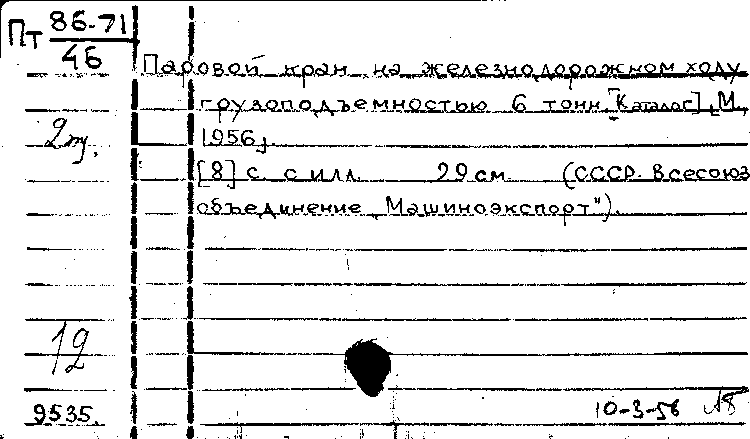 Пт 86-71
46
Паровой кран на железнодорожном ходу
грузоподъемностью 6 тонн. [Каталог]. [М.,
1956].
[8] с. с илл. 29 см. (СССР. Всесоюз
объединение „Машиноэкспорт").
12
9535.
10-3-56